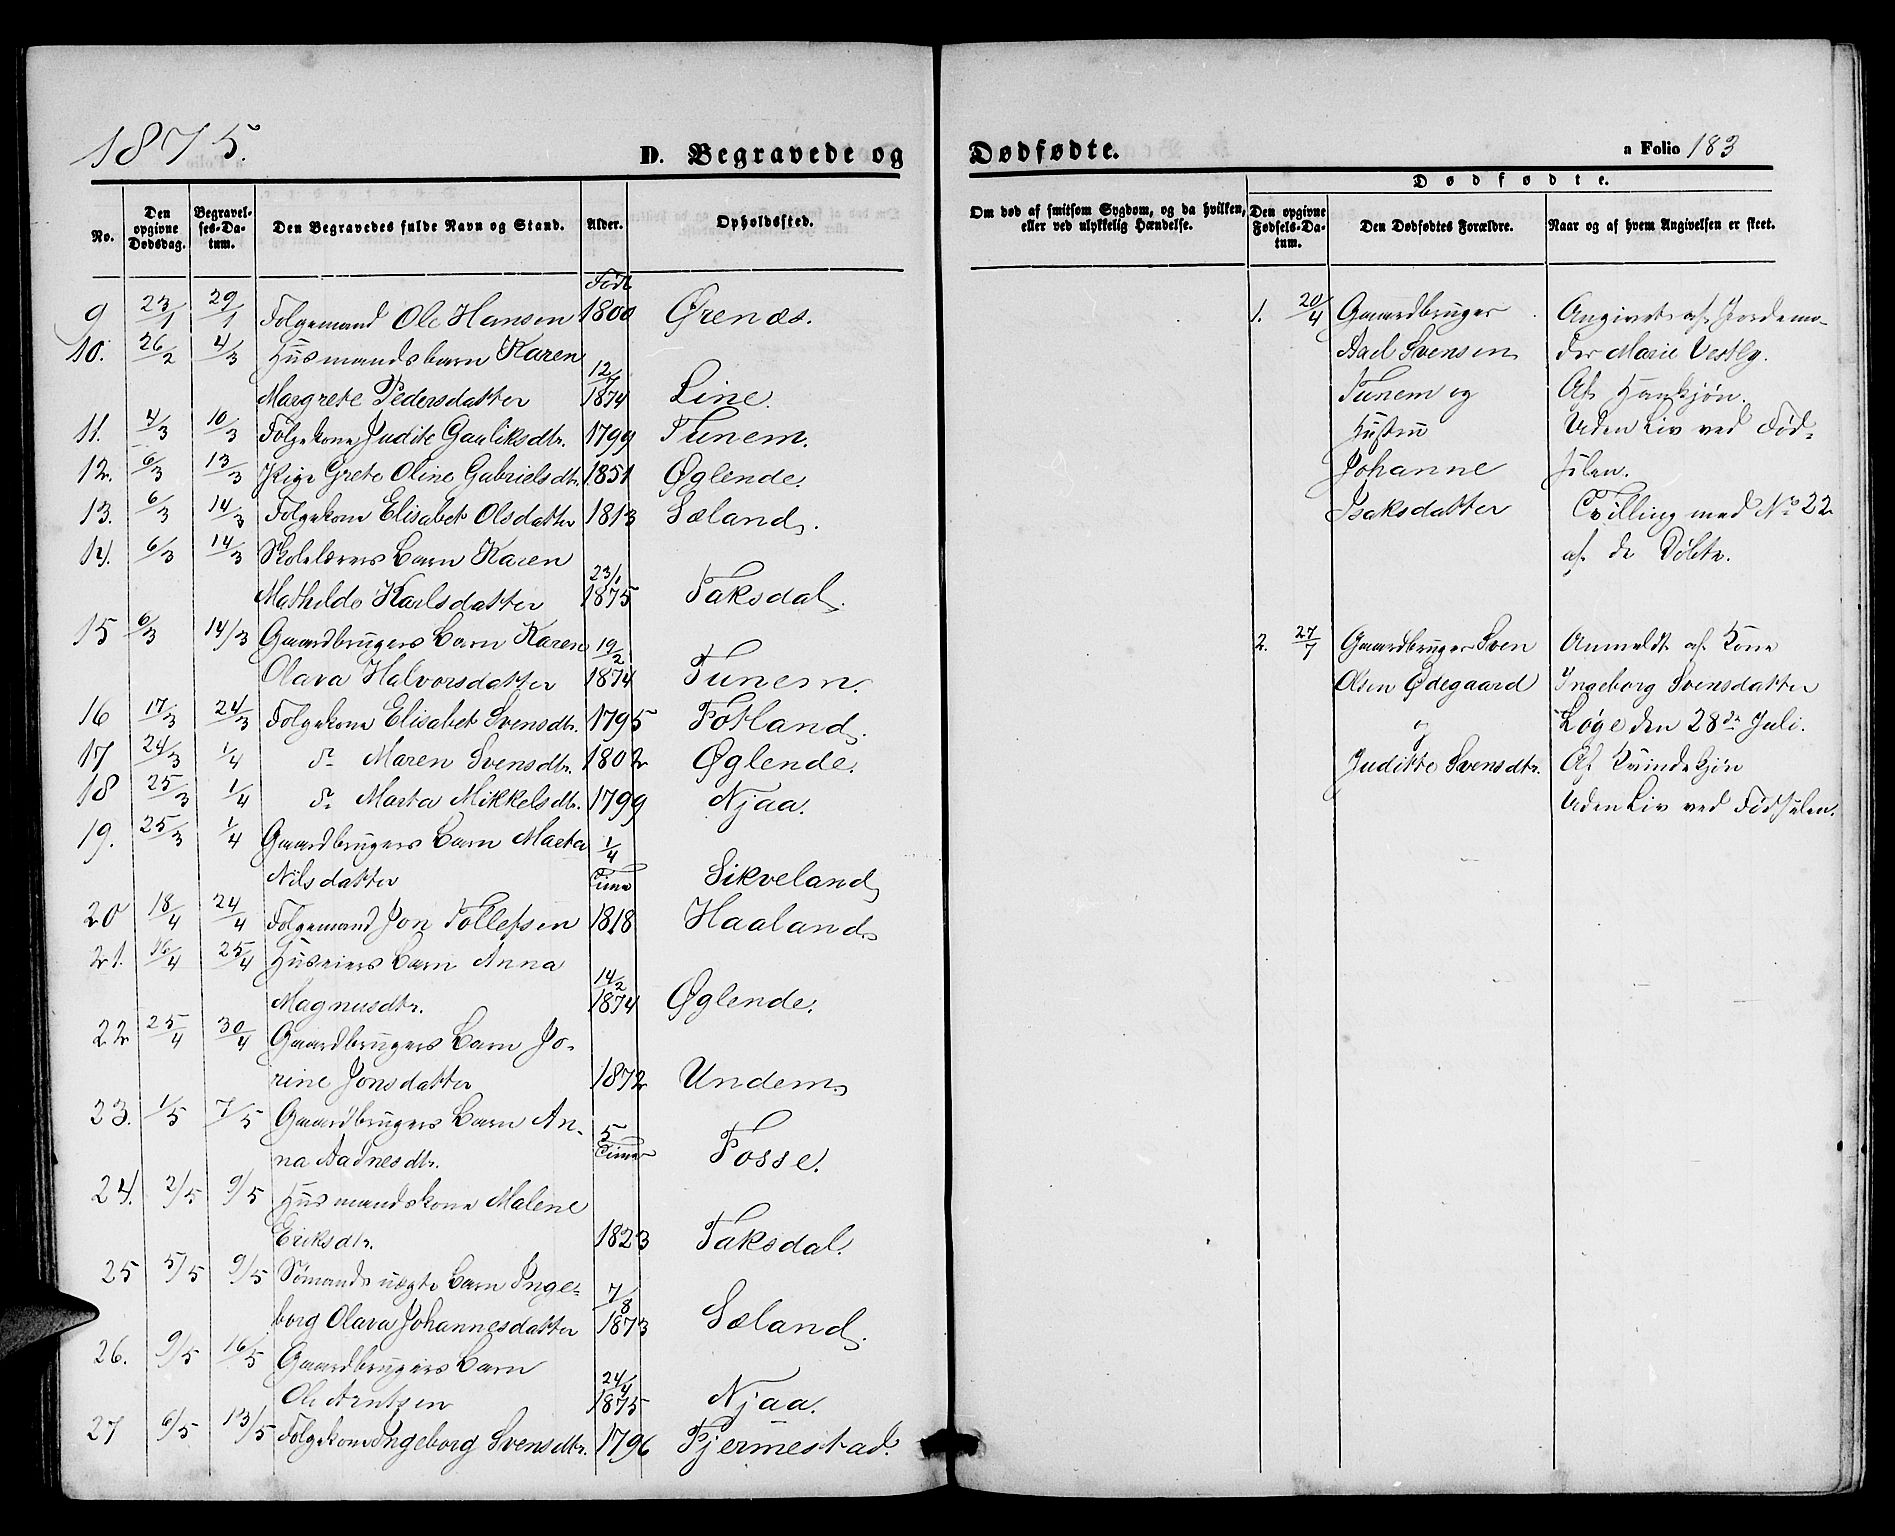 1875.
D. Begravede og
No.
Den opgivne Dødsdag.
Begravelses-Datum.
Den Begravedes fulde Navn og Stand.
Alder.
Opholdssted.
Født
9 23/1 29/1 Folgemand Ole Hansen 1800 Ørenæs.
10. 26/2 4/3 Husmandsbarn Karen 12/7
Margrete Pedersdatter 1874 Line.
11. 4/3 10/3 Folgekone Judite Gauliksdtr. 1799 Tunem.
12. 6/3 13/3 Pige Grete Oline Gabrielsdtr. 1851 Øglende.
13. 6/3 14/3 Folgekone Elisabet Olsdatter 1813 Sæland.
14. 6/3 14/3 Skolelærers Barn Karen 23/1
Mathilde Karlsdatter 1875 Taksdal.
15 6/3 14/3 Gaardbrugers Barn Karen 19/2
Olava Halvorsdatter 1874 Tunem.
16 17/3 24/3 Folgekone Elisabet Svensdtr. 1795 Fotland.
17 24/3 1/4 do Maren Svensdtr. 1802 Øglende.
18 25/3 1/4 do Marta Mikkelsdtr. 1799 Njaa.
19. 25/3 1/4 Gaardbrugers Barn Marta 1/4
Nilsdatter Time Sikveland
20 18/4 24/4 Folgemand Jon Tollefsen 1818 Haaland
21. 16/4 25/4 Huseiers Barn Anna 14/2
Magnusdtr. 1874 Øglende.
22 25/4 30/4 Gaardbrugers Barn Jo-
rine Jonsdatter 1872 Undem
23. 1/5 7/5 Gaardbrugers Barn An- 5
na Aadnesdtr. Timer Fosse.
24. 2/5 9/5 Husmandskone Malene
Eriksdtr. 1823 Taksdal.
25 5/5 9/5 Sømands uægte Barn Inge- 7/8
borg Olava Johannesdatter 1873 Sæland.
26. 9/5 16/5 Gaardbrugers Barn 24/4
Ole Arntsen 1875 Njaa.
27 6/5 13/5 Folgekone Ingeborg Svensdtr. 1796 Fjermestad.
Dødfødte.
a Folio 183
Dødfødte.
Om død af smitsom Sygdom, og da hvilken,
eller ved ulykkelig Hændelse.
Den opgivne Fødsels-Datum.
Den Dødfødtes Forældre.
Naar og af hvem Angivelsen er skeet.
1. 20/4 Gaardbruger Angivet af Jordemo-
Axel Svensen der Marie Vestly.
Tunem og Af Hankjøn.
Hustru Uden Liv ved Fød-
Johanne selen.
Isaksdatter Tvilling med No 22
af de Døbte.
2. 27/7 Gaardbruger Sven Anmeldt af Kone
Olsen Ødegaard Ingeborg Svensdatter
og Løge den 28de Juli.
Juditte Svensdtr. Af Kvindekjøn
Uden Liv ved Fødselen.